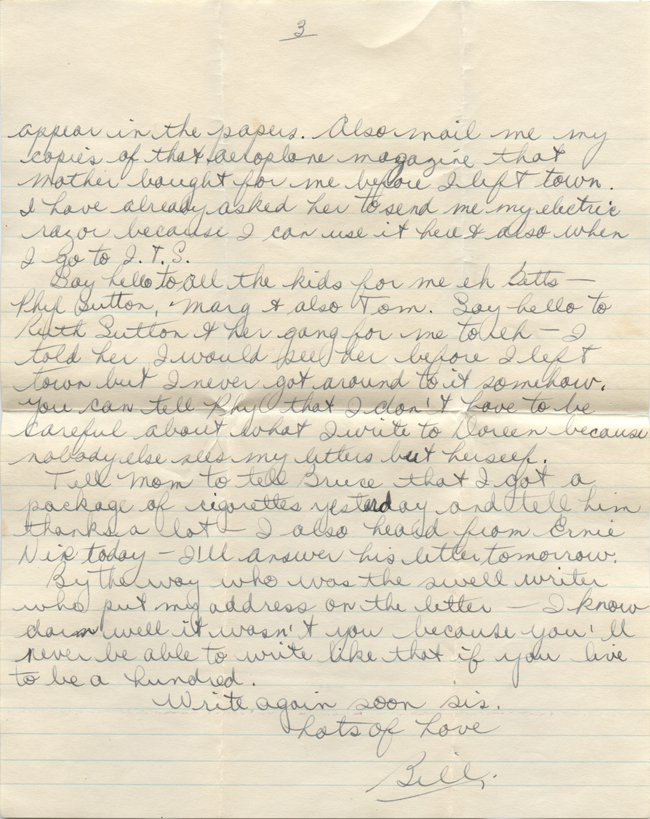 3
appear in the papers. Also mail me my
copies of that aeroplane magazine that
Mother bought for me before I left town.
I have already asked her to send me my electric
razor because I can use it here & also when
I go to I.T.S.
Say hello to all the kids for me eh Betts —
Phyl Sutton, Marg & also Tom. Say hello to
Ruth Sutton & her gang for me to eh — I
told her I would see her before I left
town but I never got around to it somehow.
You can tell Phyl that I don't have to be
careful about what I write to Doreen because
nobody else sees my letters but herself.
Tell Mom to tell Bruce that I got a
package of cigarettes yesterday and tell him
thanks a lot — I also heard from Ernie
Nix today — I'll answer his letter tomorrow.
By the way who was the swell writer
who put my address on the letter — I know
darn well it wasn't you because you'll
never be able to write like that if you live
to be a hundred.
Write again soon sis.
Lots of Love
Bill.